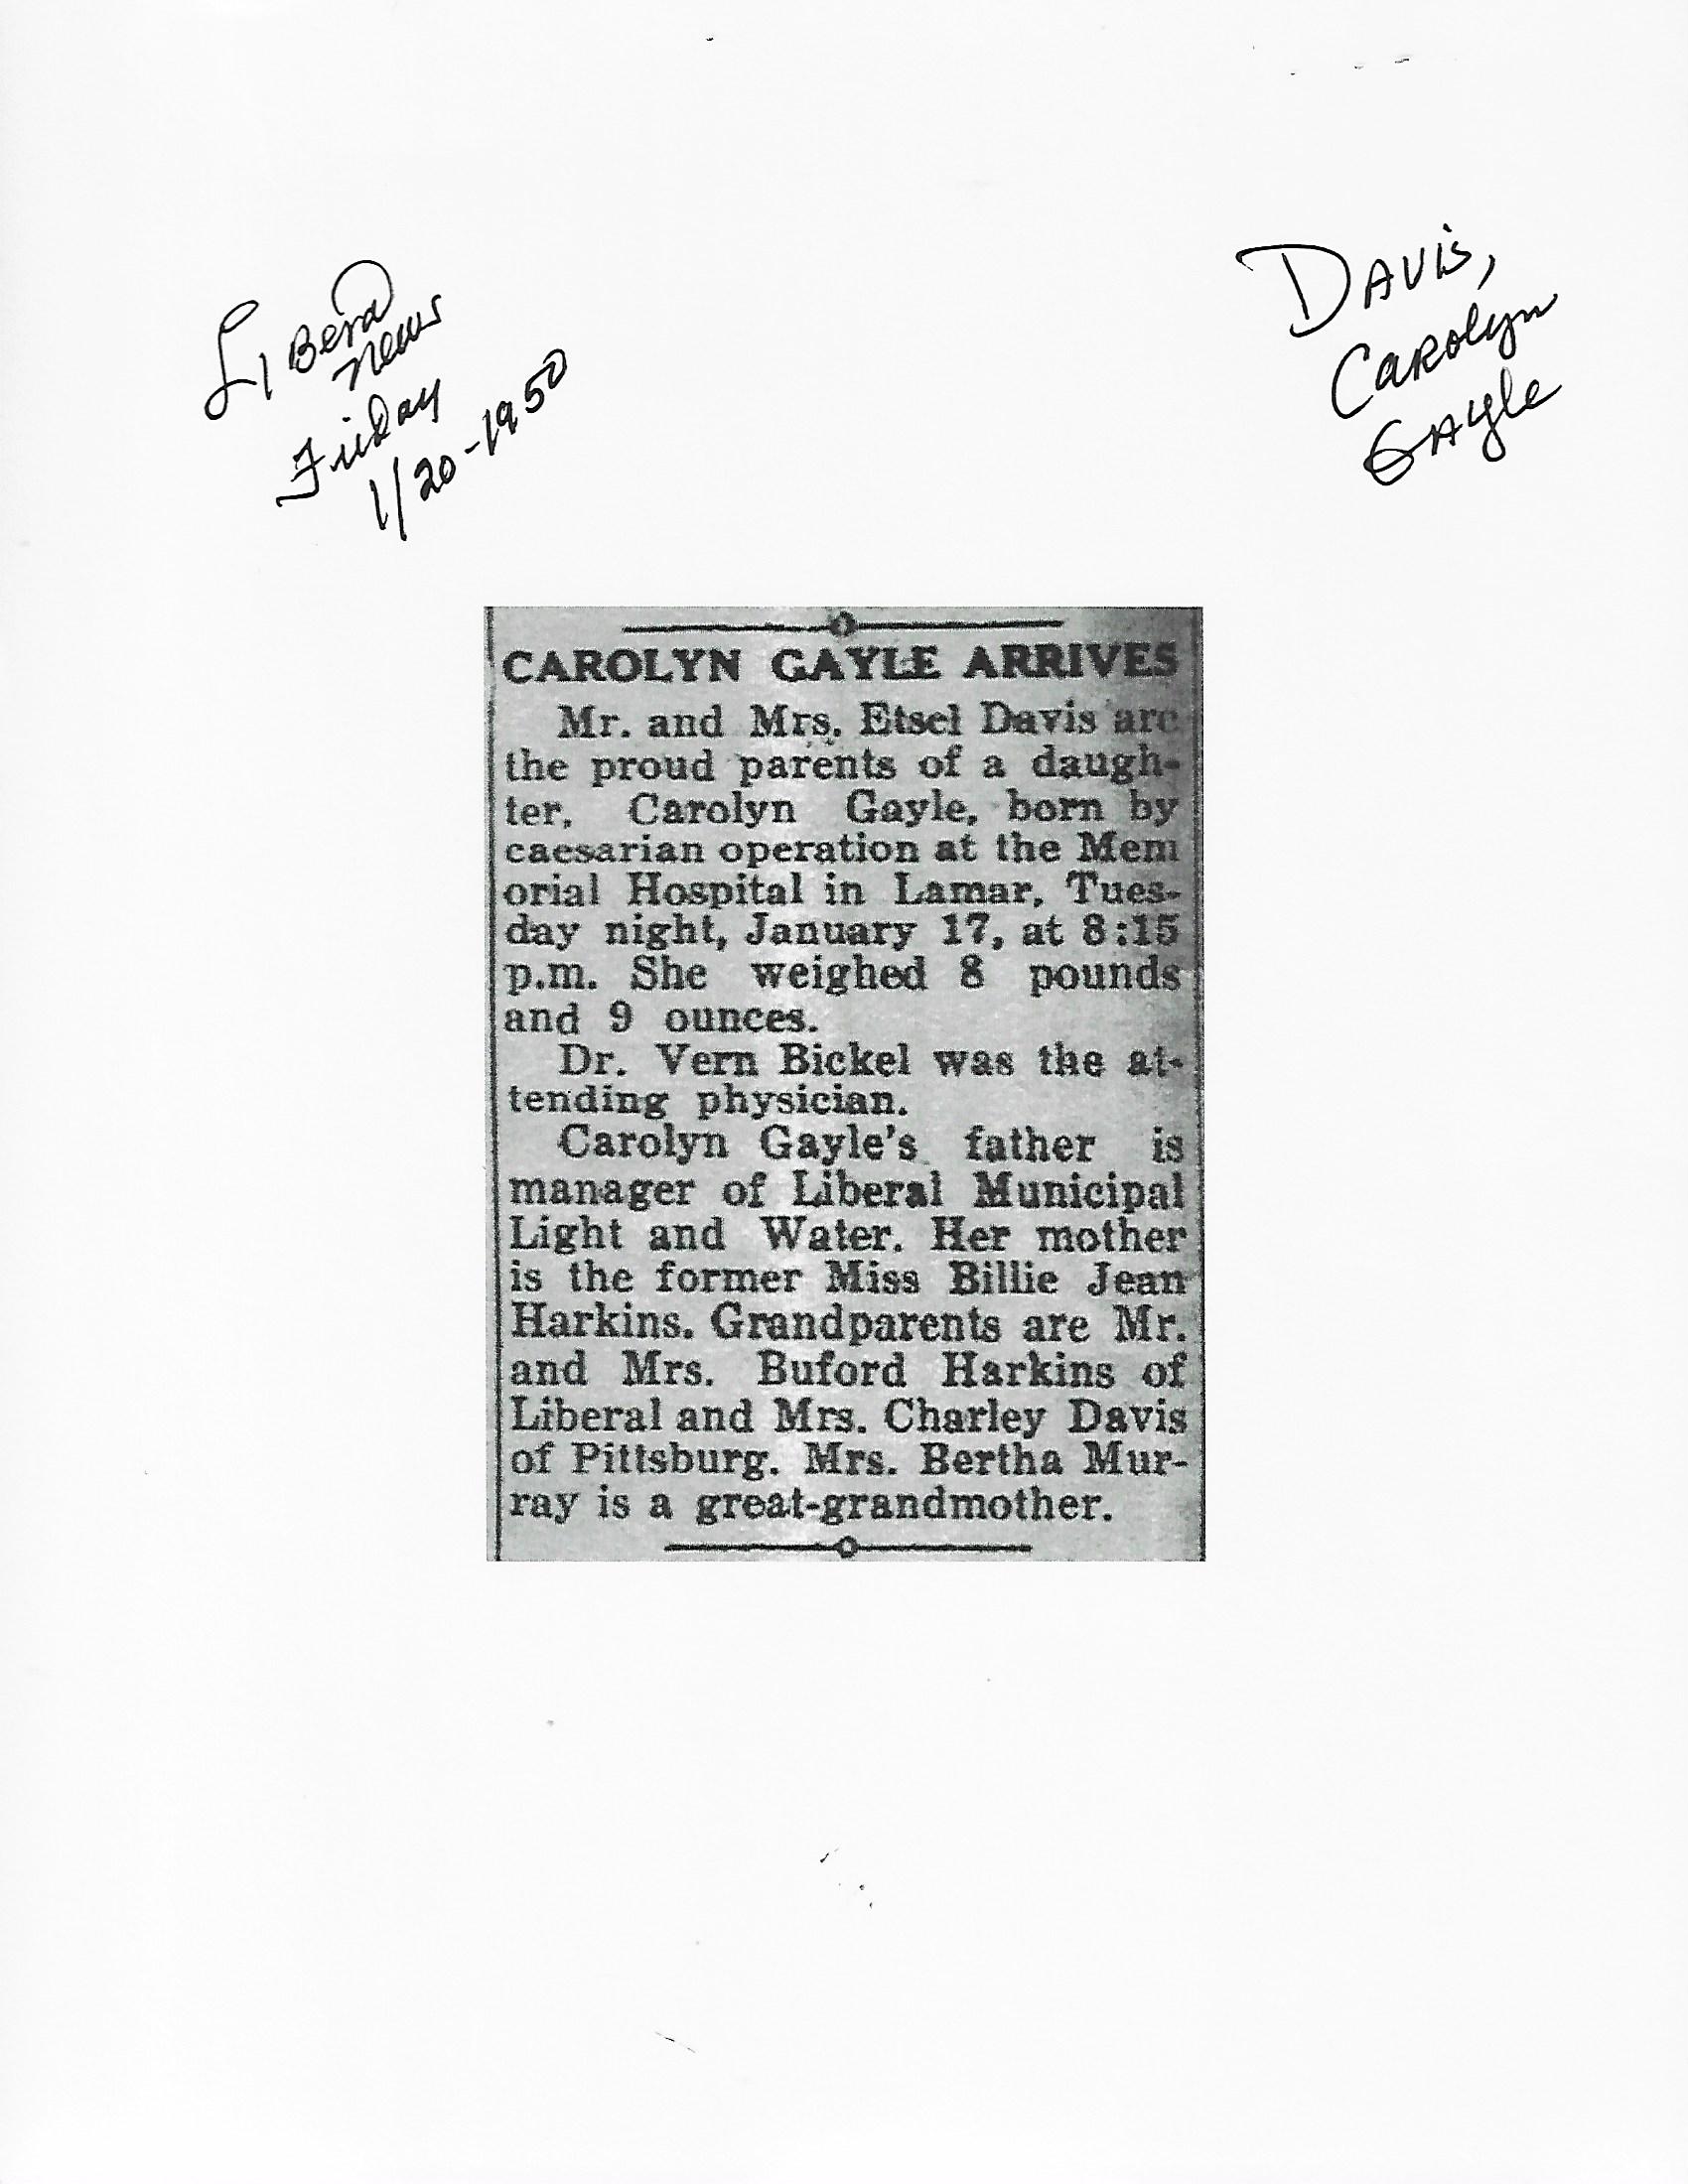 Liberal
News
Friday
1/20-1950
Davis,
Carolyn
Gayle
CAROLYN GAYLE ARRIVES
Mr. and Mrs. Etsel Davis are
the proud parents of a daugh-
ter, Carolyn Gayle, born by
caesarian operation at the Mem
orial Hospital in Lamar, Tues-
day night, January 17, at 8:15
p.m. She weighed 8 pounds
and 9 ounces.
Dr. Vern Bickel was the at-
tending physician.
Carolyn Gayle's father is
manager of Liberal Municipal
Light and Water. Her mother
is the former Miss Billie Jean
Harkins. Grandparents are Mr.
and Mrs. Buford Harkins of
Liberal and Mrs. Charley Davis
of Pittsburg. Mrs. Bertha Mur-
ray is a great-grandmother.